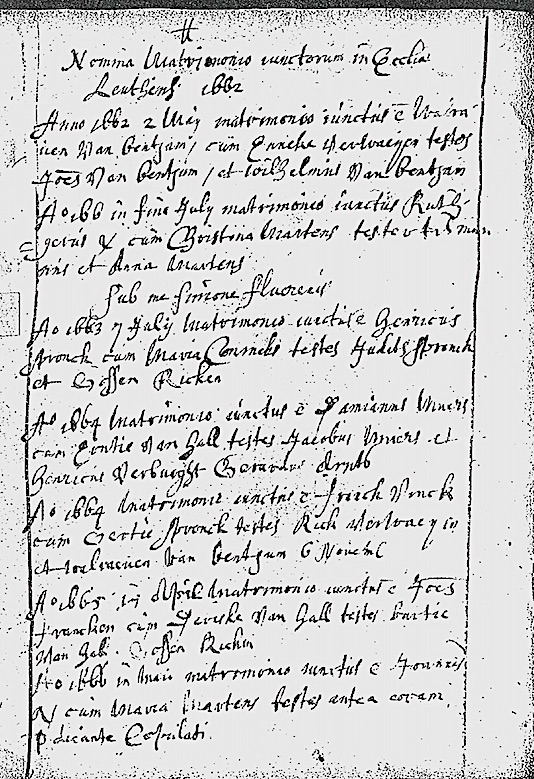 Nomina Matrimonio iunctorum in Ecclia
Leuthens 1662
Anno 1662 2 Maÿ matrimonio iunctus e Walra
uen Van bentsum, cum Enneke Verwaeyen testes
Joes Van bentsum, et wilhelmus Van bentsum
Ao 166 in fine July matrimonio iunctus Rutg
gerus N cum Christina Martens testes
et Anna Martens
sub me
Ao 1663 7 July Matrimonio iunctus e Henricus
Spronck cum Maria Cornelis testes Judith Spronck
et Gossen Ricken
Ao 1664 Matrimonio iunctus e Damianus
cum Van Hall testes Jacobus et
Henricus Verburght Gerardus Arnts
Ao 1664 Matrimonio iunctus e Vinck
cum Gertie Spronck testes Rick Verwaeyen
et walraeuen Van bentsum 6 Novemb
Ao 1665 in April Matrimonio iunctus e Joes
Francken cum Van Hall testes
Van Hall Gossen Ricken
Ao 1666 in Maio matrimonio iunctus e Joannes
N cum Maria Martens testes antea coram
pdicante Copulati